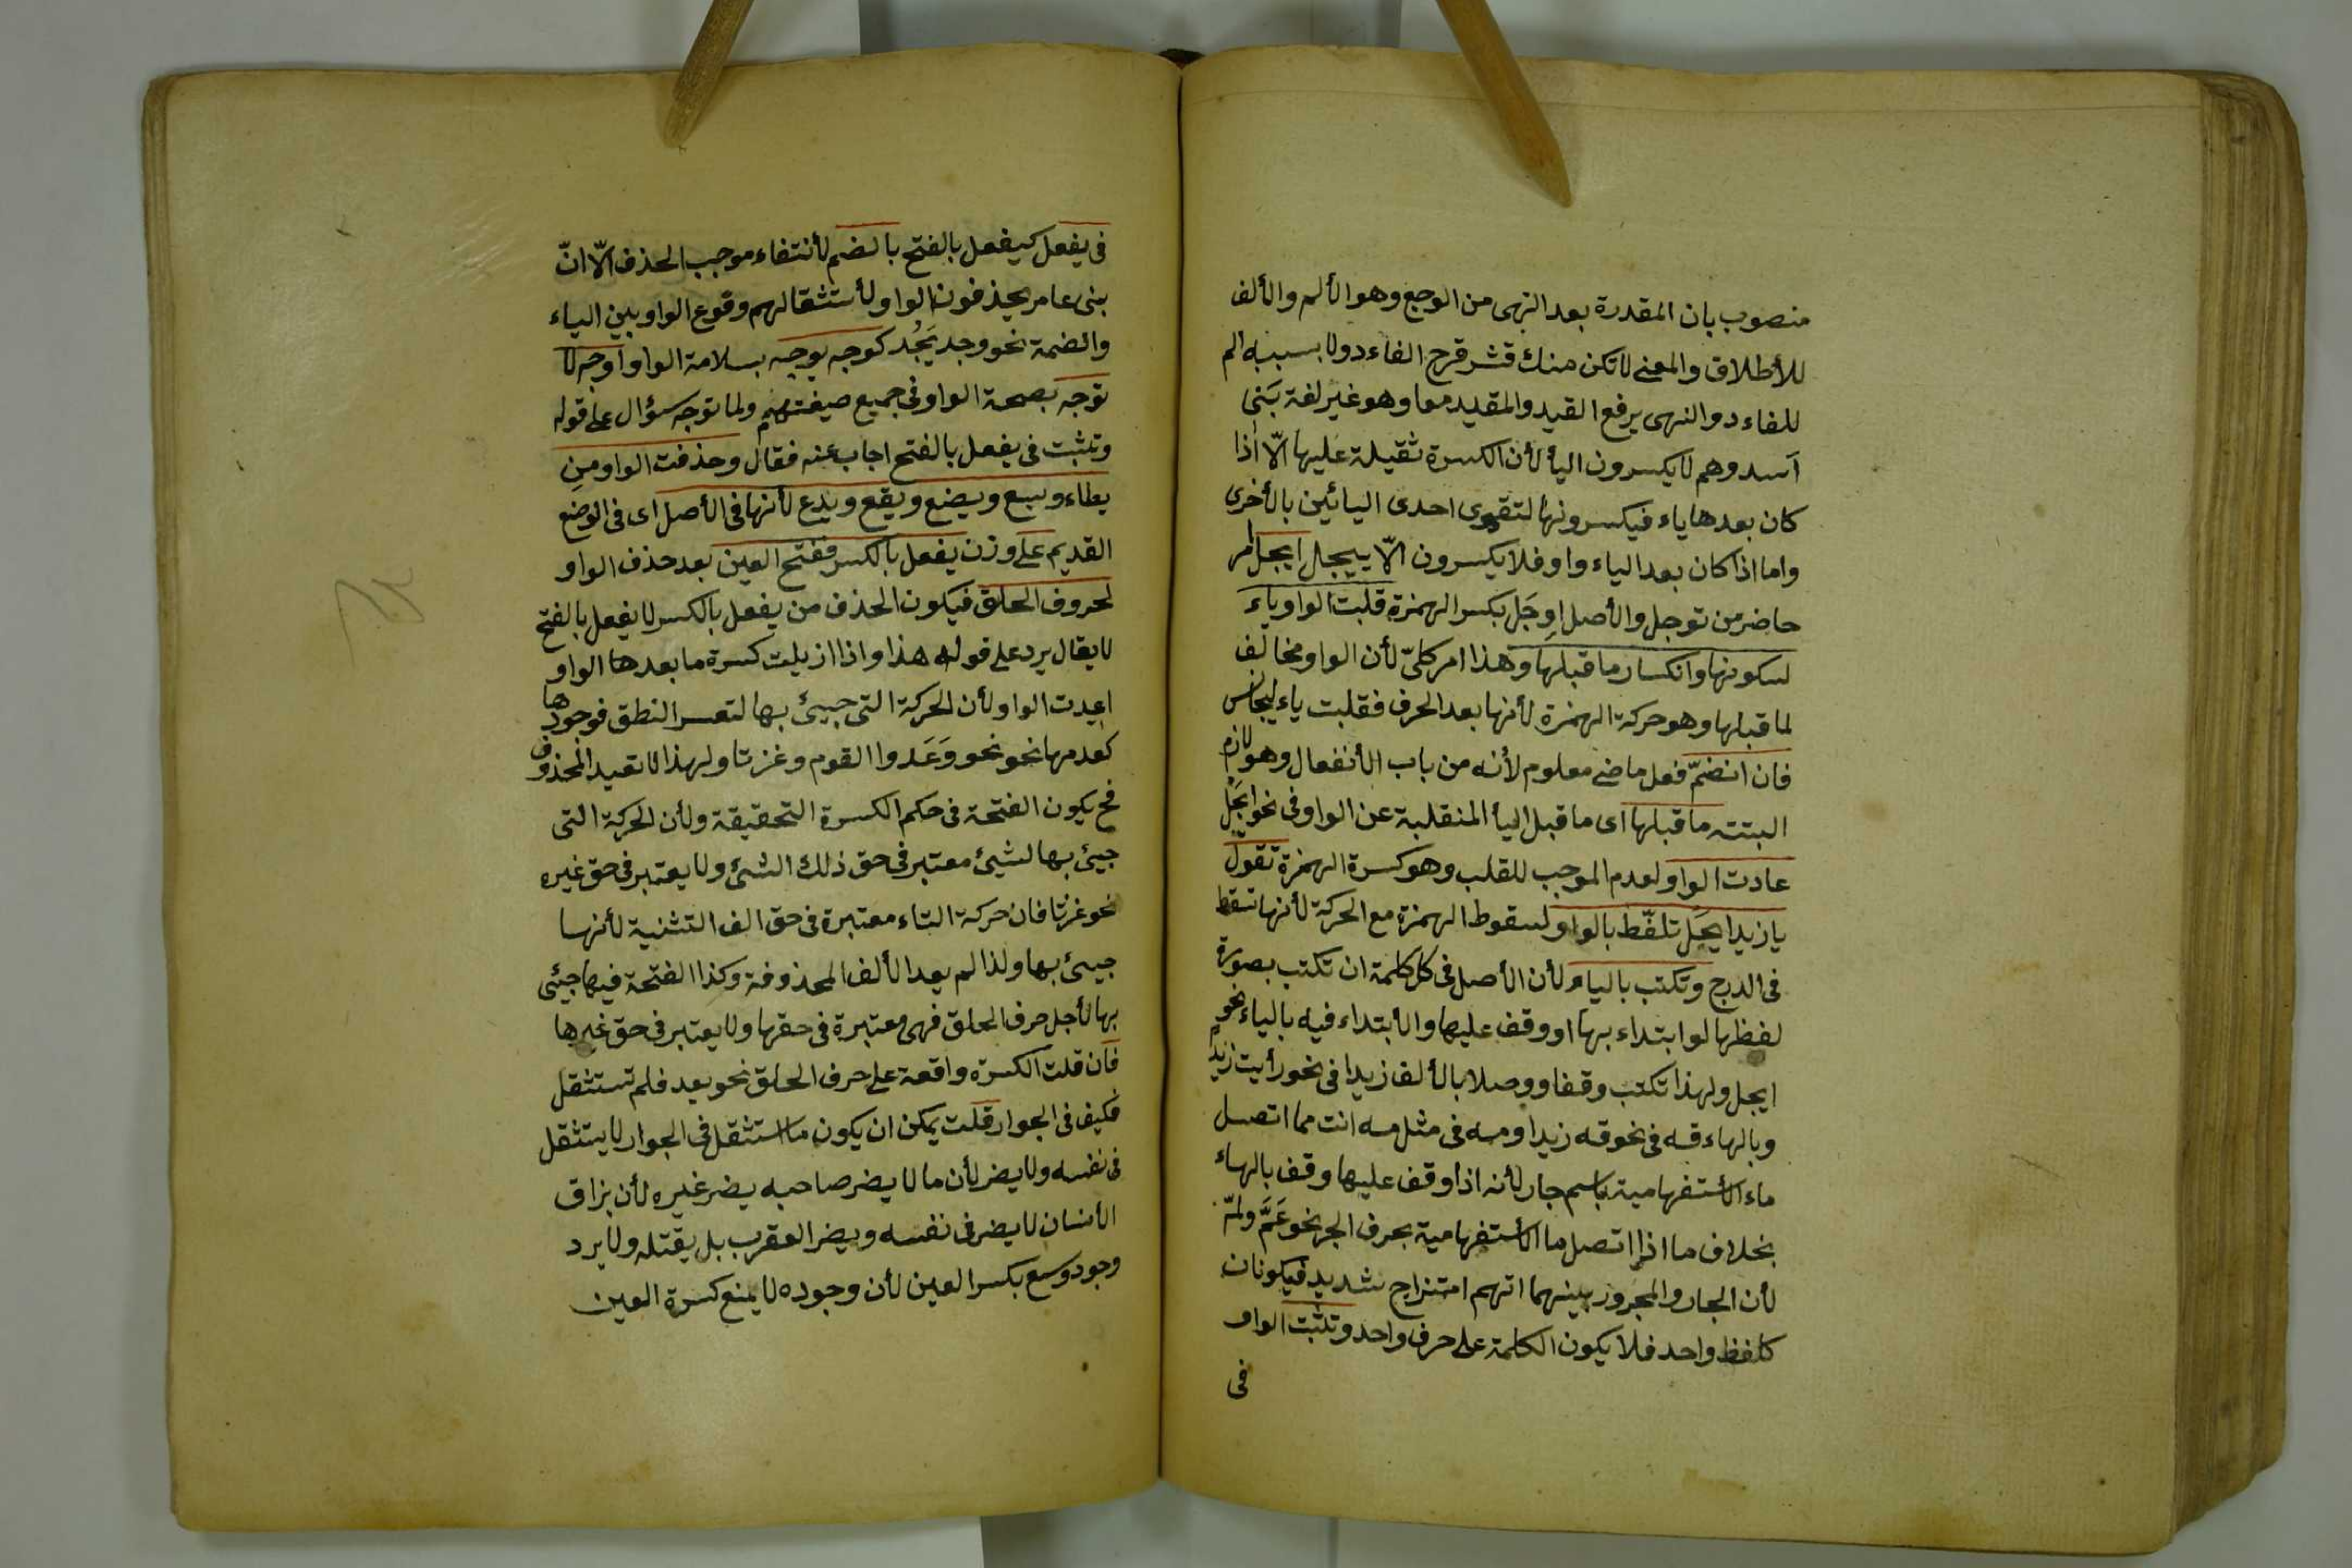 منصوب بان المقدرة بعد النهى من الوجع وهو الألم والألف
للأطلاق والمعنى لا تكن منك قشر قرح الفاءد ولا بسببه الم
للفاءد والنهى يرفع القيد والمقيد معا وهو غير لغة بَنى
اَسد وهم لا يكسرون اليأ لأن الكسرة ثقيلة عليها الّا اذا
كان بعدها ياء فيكسرونها لتقوى احدى اليائين بالأخرى
واما اذا كان بعد الياء واو فلا يكسرون الّا ييجل ايجل امر
حاضر من توجل والأصل اوِجَل بكسر الهمزة قلبت الواو ياءَ
لسكونها وانكسار ما قبلها وهذا امر كليّ لأن الواو مخالف
لما قبلها وهو حركة الهمزة لأنها بعد الحرف فقلبت ياء ليجانس
فان انضمّ فعل ماضى معلوم لأنه من باب الأنفعال وهو لازم
البتته ما قبلها اى ما قبل اليأ المنقلبة عن الواو فى نحو ايجَل
عادت الواو لعدم الموجب للقلب وهو كسرة الهمزة تقول
يا زيد ايجَل تلفّط بالواو لسقوط الهمزة مع الحركة لأنها تسقط
فى الدرج وتكتب بالياء لأن الأصل فى كل كلمة ان تكتب بصورة
لفظها لو ابتداء بها او وقف عليها والأبتداء فيه بالياء نحو
ايجل ولهذا تكتب وقفا ووصلا بالألف زيدا فى نحو رأيت زيدا
وبالهاء قه فى نحو قه زيدا ومه فى مثل مه انت مما اتصل
ماء الأستفهامية باسم جار لأنه اذا وقف عليها وقف بالهاء
بخلاف ما اذا اتصل ما الأستفهامية بحرف الجر نحو عَمَّ ولمَّه
لأن الجار والمجرور بينهما اتهم امتزاج شديد فيكونان
كلفظ واحد فلا يكون الكلمة على حرف واحد وتثبت الواو
فى
فى يفعل كيفعل بالفتح بالضم لأنتفاء موجب الحذف الّا انّ
بنى عامر يحذفون الواو لأستثقالهم وقوع الواو بين الياء
والضمة نحو وجد يَجُد كوجه يوجه بسلامة الواو اوجه لا
توجه بصحة الواو فى جميع صيغتهم ولما توجه سؤال على قوله
وتثبت فى يفعل بالفتح اجاب عنه فقال وحذفت الواو من
يطاء ويسع ويضع ويقع ويدع لأنها فى الأصل اى فى الوضع
القديم على وزن يفعل بالكسر ففتح العين بعد حذف الواو
لحروف الحلق فيكون الحذف من يفعل بالكسر لا يفعل بالفتح
لا يقال يرد على قوله هذا واذا ازيلت كسرة ما بعدها الواو
اعيدت الواو لأن الحركة التى جيئ بها لتعسر النطق فوجودها
كعدمها نحو نحو وَعَدوا القوم وغزتا ولهذا لا تعيد المحذوف
فح يكون الفتحة فى حكم الكسرة التحقيقة ولأن الحركة التى
جيئ بها لشيئ معتبر فى حق ذلك الشئ ولا يعتبر فى حق غيره
نحو غزتا فان حركة التاء معتبرة فى حق الف التثنية لأنها
جيئ بها ولذا لم يعد الألف المحذوفة وكذا الفتحة فيها جيئى
بها لأجل حرف الحلق فهى معتبرة فى حقها ولا يعتبر فى حق غيرها
فان قلت الكسرة واقعة على حرف الحلق نحو يعد فلم تستثقل
فكيف فى الجوار قلت يمكن ان يكون ما استثقل فى الجوار لا يستثقل
فى نفسه ولا يضر لأن ما لا يضر صاحبه يضر غيره لأن بزاق
الأنسان لا يضر فى نفسه ويضر العقرب بل يقتله ولا يرد
وجود وسع بكسر العين لأن وجوده لا يمنع كسرة العين